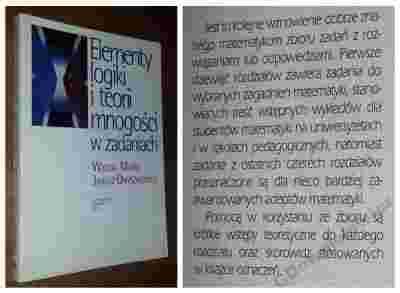 Elementy
logiki
i teorii
mnogości
w zadaniach
Wiktor Marek
Janusz Onyszkiewicz
Jest to kolejne wznowienie dobrze zna-
nego matematykom zbioru zadań z roz-
wiązaniami lub odpowiedziami. Pierwsze
dziewięć rozdziałów zawiera zadania do
wybranych zagadnień matematyki, stano-
wiących treść wstępnych wykładów dla
studentów matematyki na uniwersytetach
i w szkołach pedagogicznych, natomiast
zadania z ostatnich czterech rozdziałów
przeznaczone są dla nieco bardziej za-
awansowanych adeptów matematyki.
Pomocą w korzystaniu ze zbioru są
krótkie wstępy teoretyczne do każdego
rozdziału oraz skorowidz stosowanych
w książce oznaczeń.